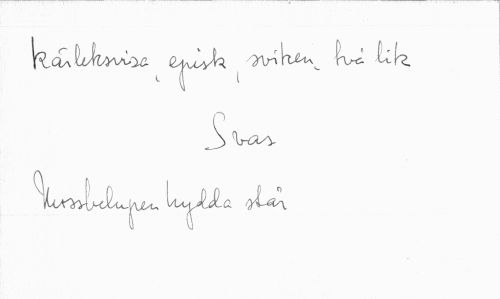 Kärleksvisa, episk, sviken, två lik
Svar
Mossbelupen hydda står